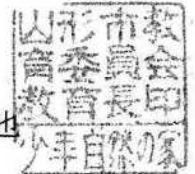 山形市教
育委員会
教育長印
少年自然の家